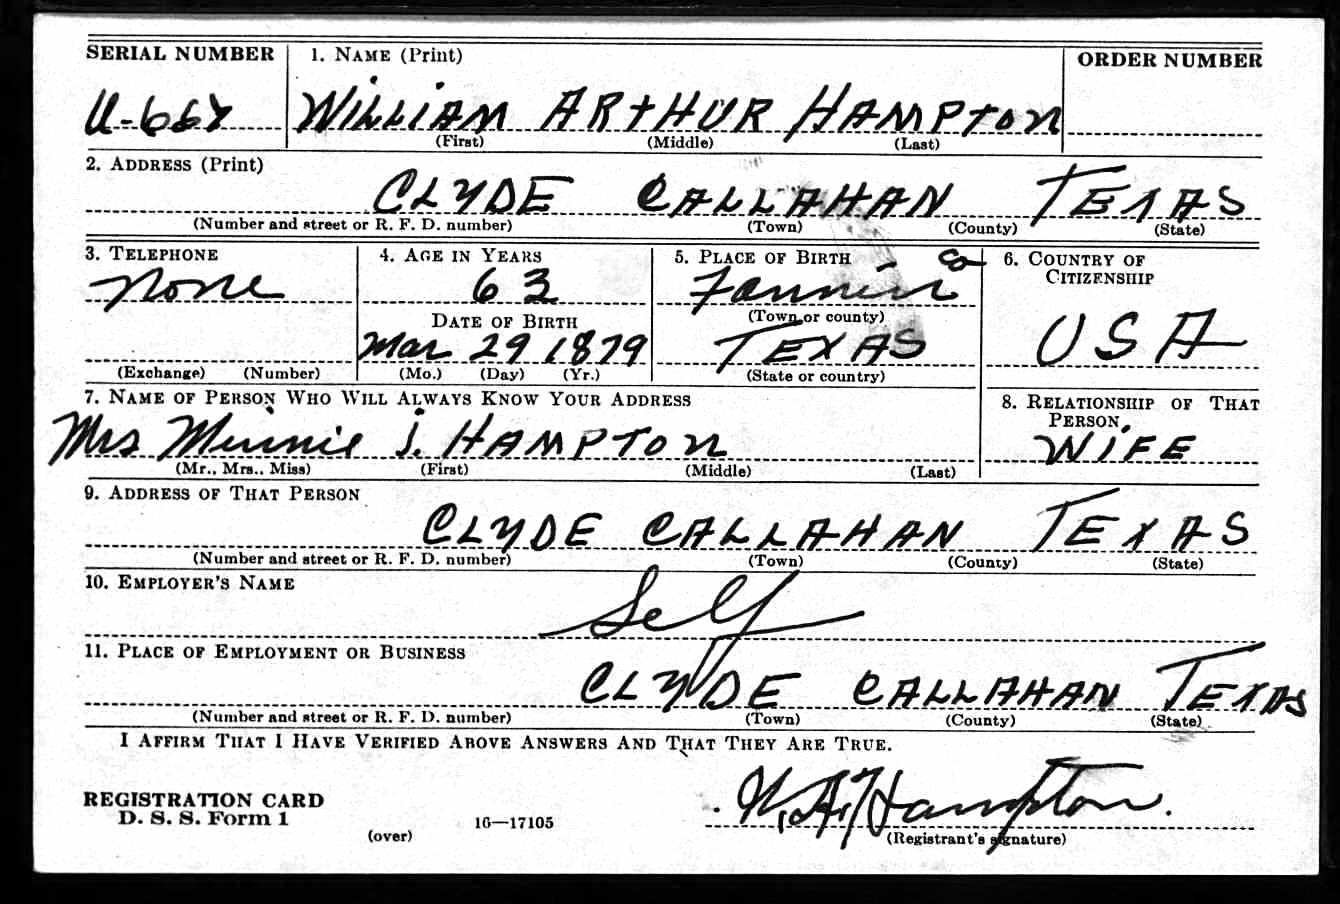 SERIAL NUMBER 1. NAME (Print) ORDER NUMBER
WiLLiAM ARTHUR HAMPTON
(First) (Middle) (Last)
2. ADDRESS (Print)
CLYDE CALLAHAN TEXAS
(Number and street or R. F. D. number) (Town) (County) (State)
3. TELEPHONE 4. AGE IN YEARS 5. PLACE OF BIRTH 6. COUNTRY OF CITIZENSHIP
None 63 Fannin Co
(Town or county)
DATE OF BIRTH
Mar 29 1879 TEXAS USA
(Exchange) (Number) (Mo.) (Day) (Yr.) (State or country)
7. NAME OF PERSON WHO WILL ALWAYS KNOW YOUR ADDRESS 8. RELATIONSHIP OF THAT PERSON
Mrs Minnie J. HAMPTON WiFE
(Mr., Mrs., Miss) (First) (Middle) (Last)
9. ADDRESS OF THAT PERSON
CLYDE CALLAHAN TEXAS
(Number and street or R. F. D. number) (Town) (County) (State)
10. EMPLOYER'S NAME
Self
11. PLACE OF EMPLOYMENT OR BUSINESS
CLYDE CALLAHAN TEXAS
(Number and street or R. F. D. number) (Town) (County) (State)
I AFFIRM THAT I HAVE VERIFIED ABOVE ANSWERS AND THAT THEY ARE TRUE.
W. A. Hampton.
REGISTRATION CARD
D. S. S. Form 1
(over) 16—17105 (Registrant's signature)